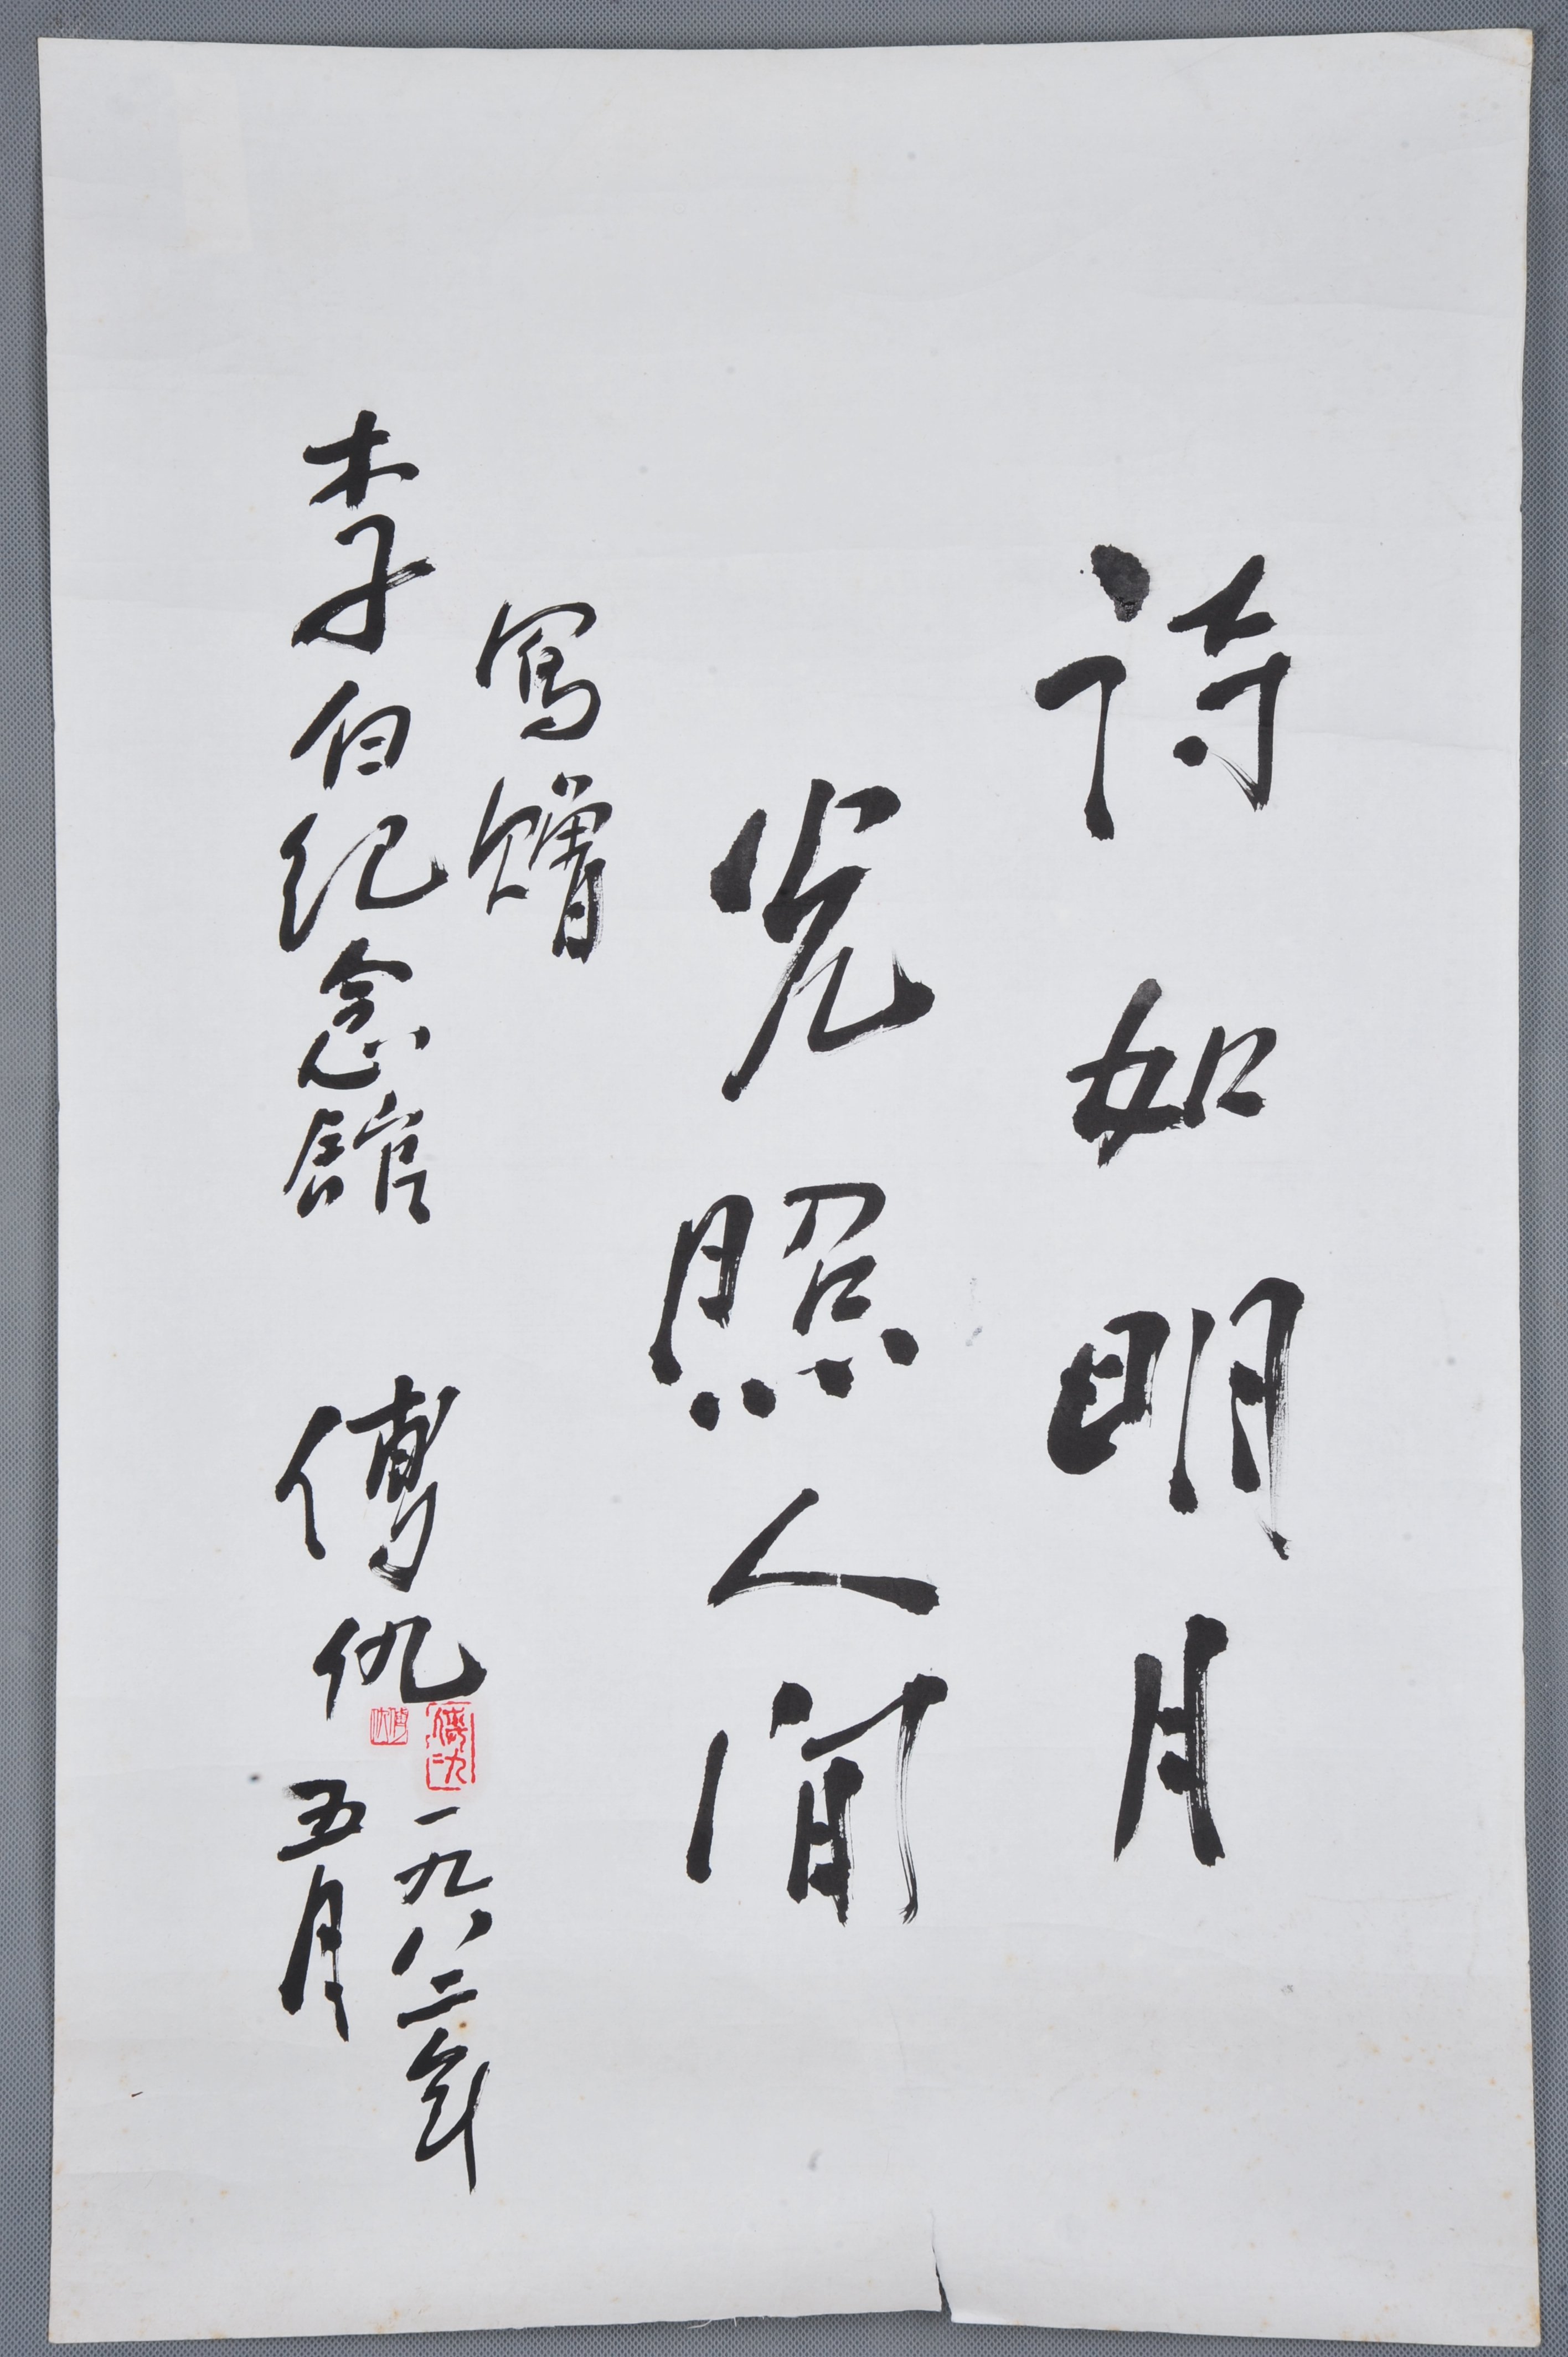 詩如明月
光照人間
寫贈
李白纪念館 傅仇
一九八二年
五月
傅仇
傅仇